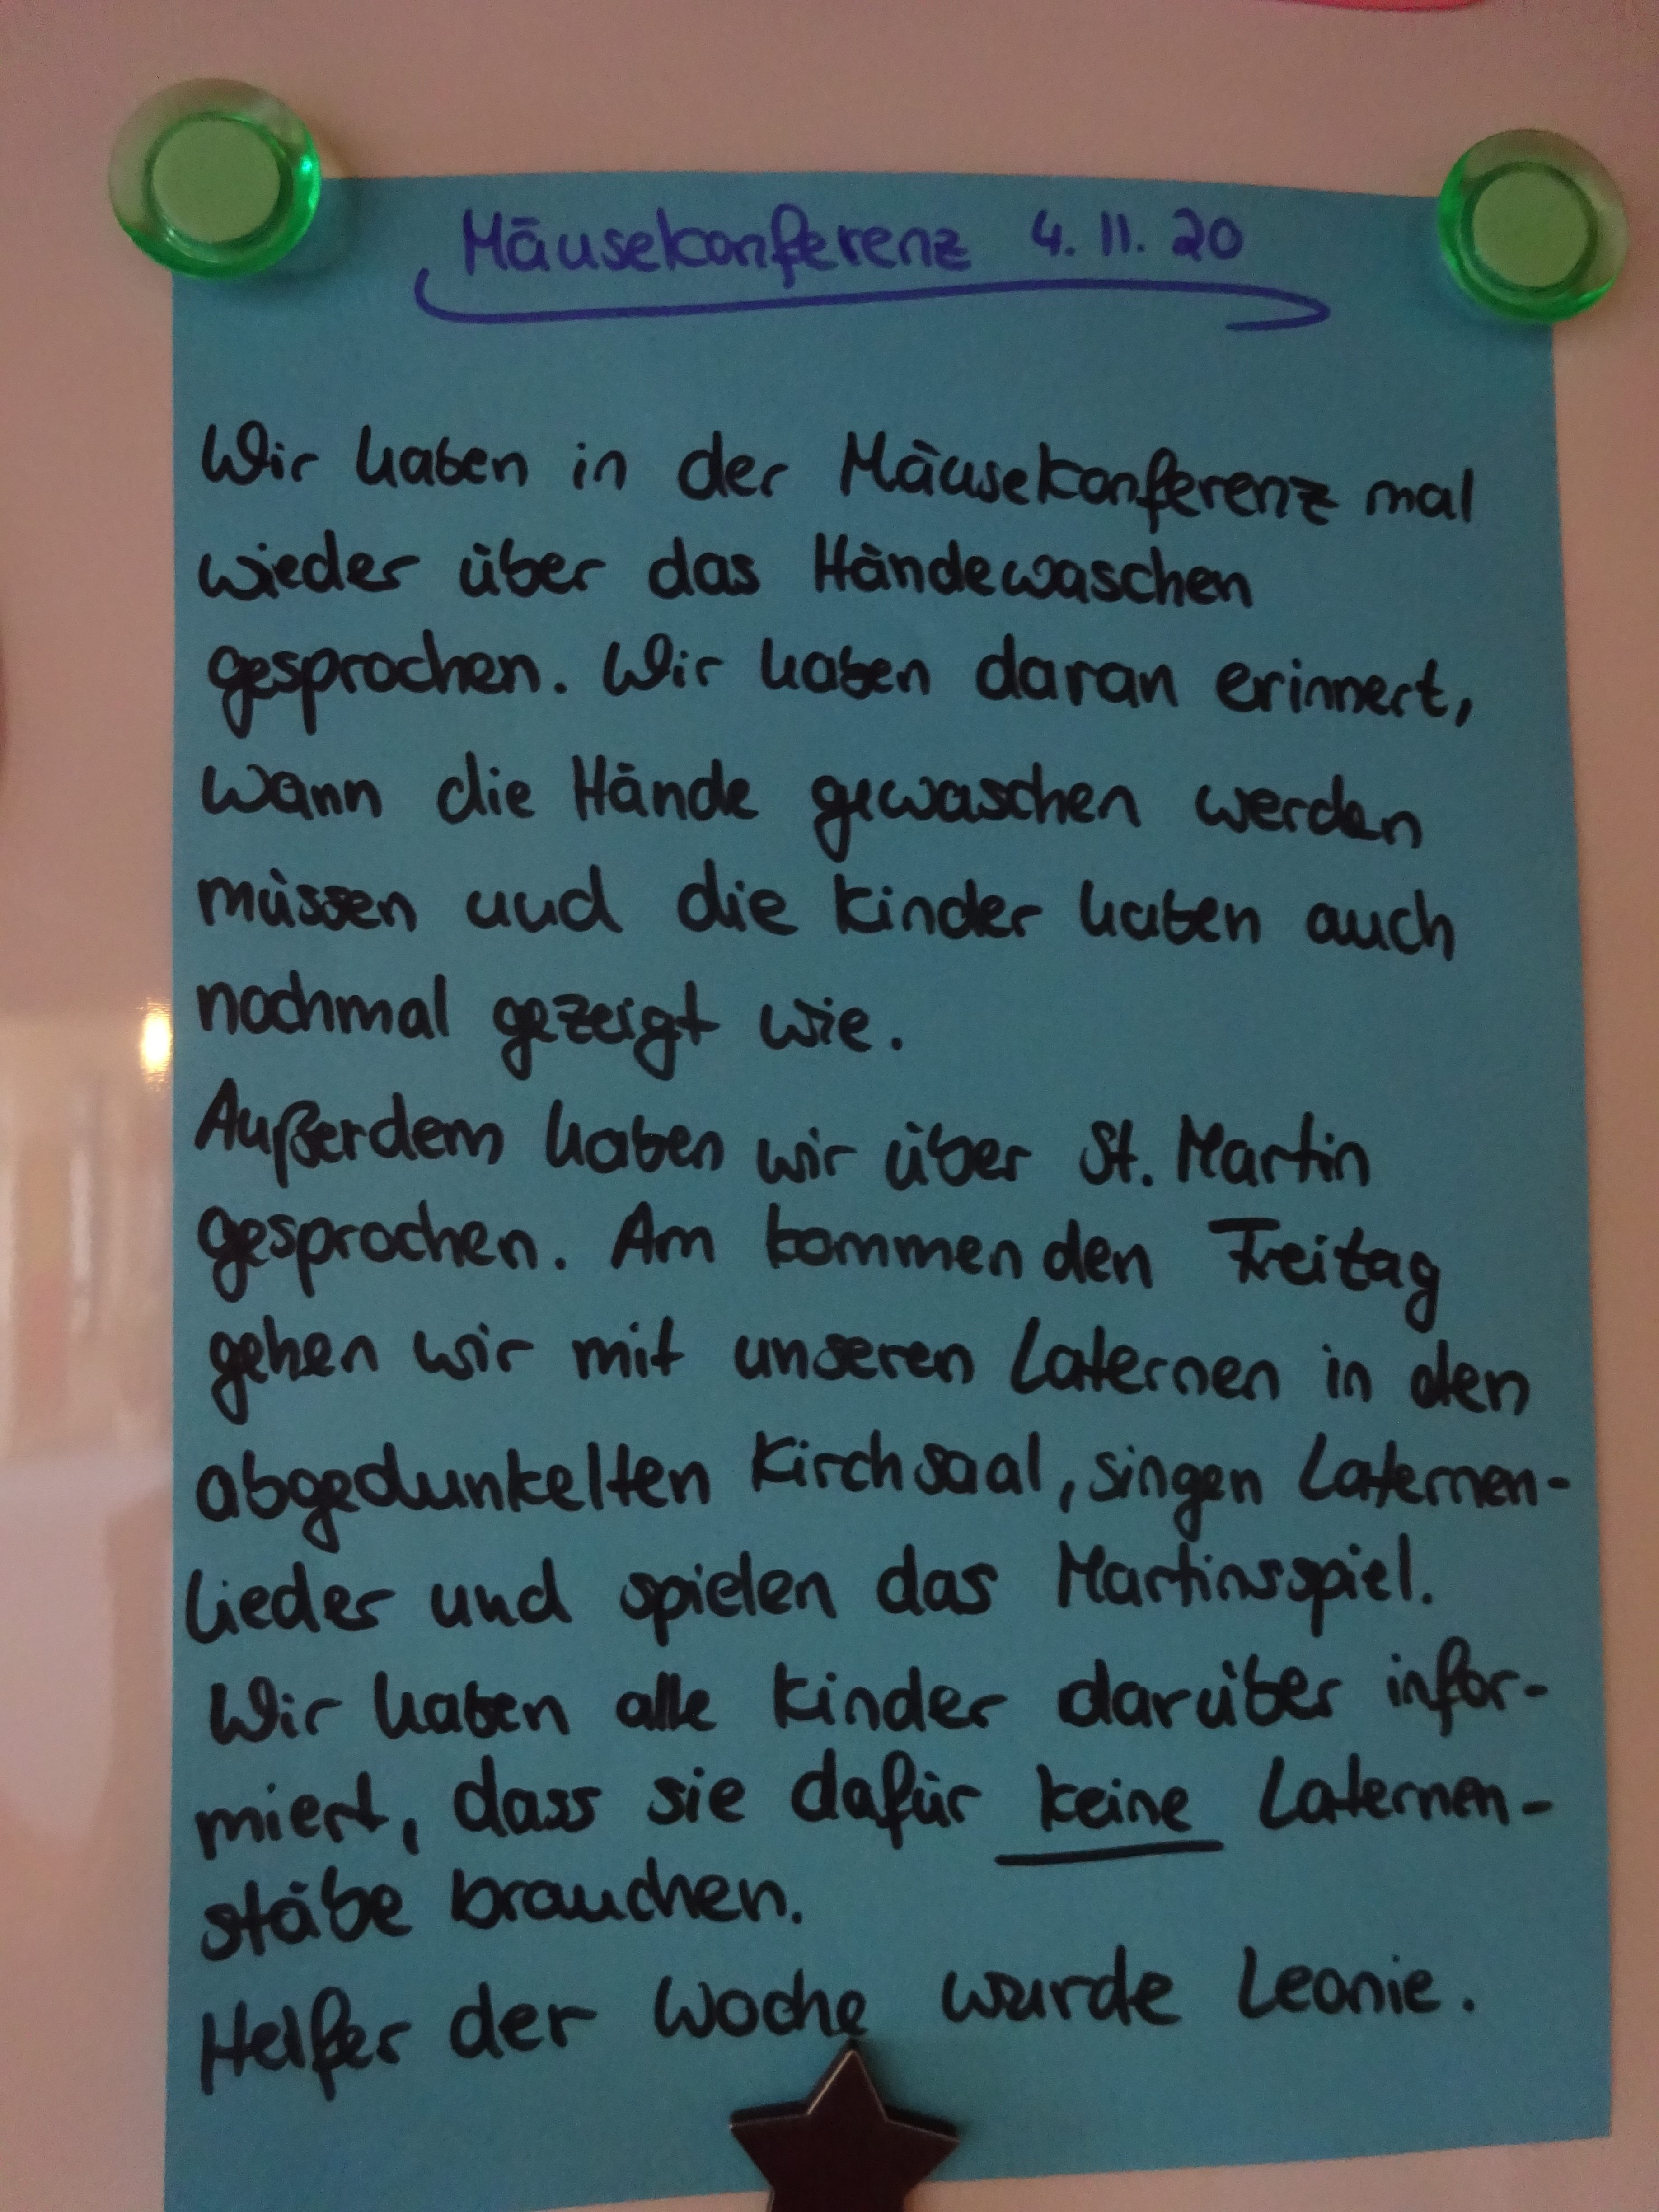 Mäusekonferenz 4.11.20
Wir haben in der Mäusekonferenz mal
wieder über das Händewaschen
gesprochen. Wir haben daran erinnert,
wann die Hände gewaschen werden
müssen und die Kinder haben auch
nochmal gezeigt wie.
Außerdem haben wir über St. Martin
gesprochen. Am kommenden Freitag
gehen wir mit unseren Laternen in den
abgedunkelten Kirchsaal, singen Laternen-
lieder und spielen das Martinsspiel.
Wir haben alle Kinder darüber infor-
miert, dass sie dafür keine Laternen-
stäbe brauchen.
Helfer der Woche wurde Leonie.